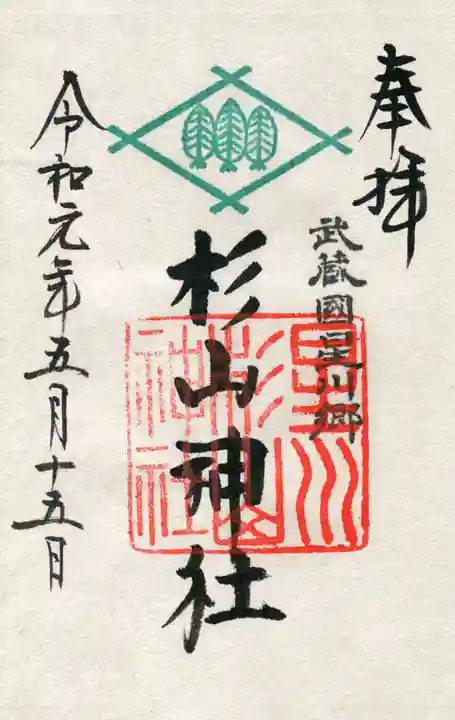 奉拝
武蔵國星川郷
杉山神社
星川杉山神社
令和元年五月十五日